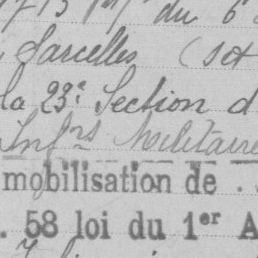 du 6
Sarcelles (Set
la 23e Section d
Infrs Militaire
mobilisation de .
. 58 loi du 1er A